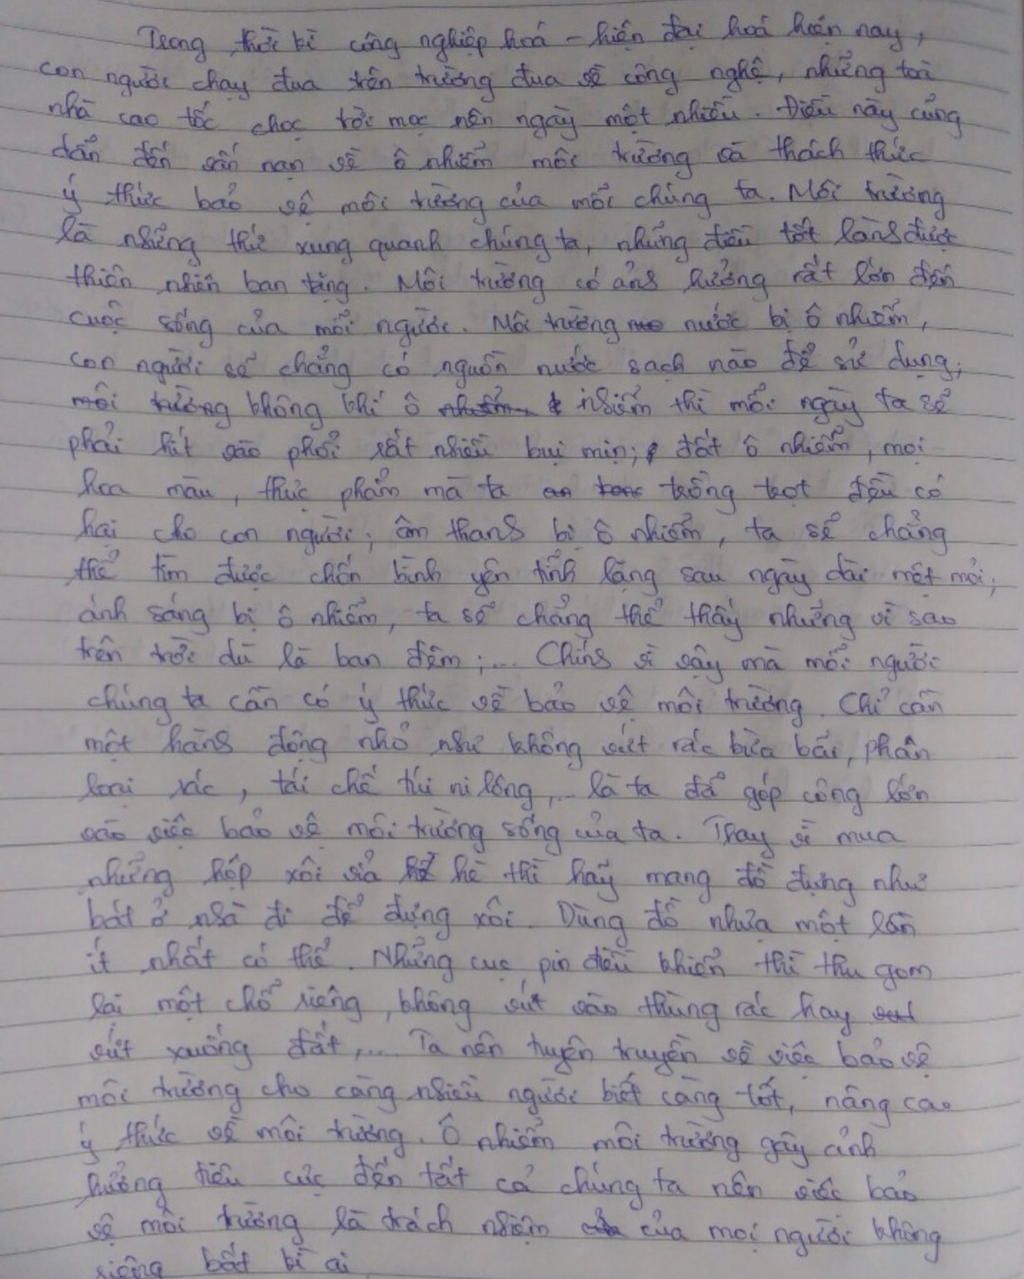 Trong thời kì công nghiệp hoá - hiện đại hoá hiện nay,
con người chạy đua trên trường đua về công nghệ, những toà
nhà cao tốc chọc trời mọc nên ngày một nhiều. Điều này cũng
dẫn đến vấn nạn về ô nhiễm môi trường và thách thức
ý thức bảo vệ môi trường của mỗi chúng ta. Môi trường
là những thứ xung quanh chúng ta, những điều tốt lành được
thiên nhiên ban tặng. Môi trường có ảnh hưởng rất lớn đến
cuộc sống của mỗi người. Môi trường nước bị ô nhiễm,
con người sẽ chẳng có nguồn nước sạch nào để sử dụng;
môi trường không khí ô nhiễm thì mỗi ngày ta sẽ
phải hít vào phổi rất nhiều bụi mịn; đất ô nhiễm, mọi
hoa màu, thực phẩm mà ta trồng trọt đều có
hại cho con người; âm thanh bị ô nhiễm, ta sẽ chẳng
thể tìm được chốn bình yên tĩnh lặng sau ngày dài mệt mỏi;
ánh sáng bị ô nhiễm, ta sẽ chẳng thể thấy những vì sao
trên trời dù là ban đêm;... Chính vì vậy mà mỗi người
chúng ta cần có ý thức về bảo vệ môi trường. Chỉ cần
một hành động nhỏ như không vứt rác bừa bãi, phân
loại rác, tái chế túi ni lông,... là ta đã góp công lớn
vào việc bảo vệ môi trường sống của ta. Thay vì mua
những hộp xôi vỉa hè thì hãy mang đồ đựng như
bát ở nhà đi để đựng xôi. Dùng đồ nhựa một lần
ít nhất có thể. Những cục pin điều khiển thì thu gom
lại một chỗ riêng, không vứt vào thùng rác hay
vứt xuống đất,... Ta nên tuyên truyền về việc bảo vệ
môi trường cho càng nhiều người biết càng tốt, nâng cao
ý thức về môi trường. Ô nhiễm môi trường gây ảnh
hưởng tiêu cực đến tất cả chúng ta nên việc bảo
vệ môi trường là trách nhiệm của mọi người không
riêng bất kì ai